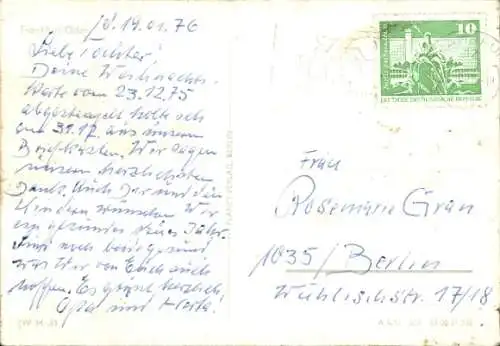 Frankfurt (Oder)
d. 19.01.76
Liebe Tochter!
Deine Weihnachts-
karte vom 23.12.75
abgestempelt holte ich
am 31.12. aus unserem
Briefkasten. Wir sagen
unseren herzlichsten
Dank. Auch Dir und den
Kindern wünschen Wir
ein gesundes neues Jahr.
Sind noch beide gesund
was Wir von Euch auch
hoffen. Es grüßt herzlich
Opa und Herta!
10
DEUTSCHE DEMOKRATISCHE REPUBLIK
PLANET-VERLAG BERLIN
Frau
Rosemarie Gran
1035/Berlin
Wühlischstr. 17/18